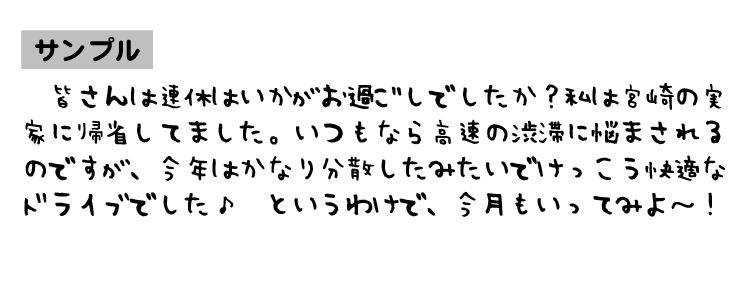 サンプル
皆さんは連休はいかがお過ごしでしたか？私は宮崎の実
家に帰省してました。いつもなら高速の渋滞に悩まされる
のですが、今年はかなり分散したみたいでけっこう快適な
ドライブでした♪　というわけで、今月もいってみよ〜！